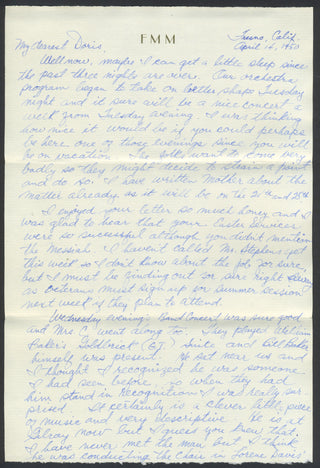 FMM
Fresno, Calif.
April 16, 1950
My dearest Doris,
Well now, maybe I can get a little sleep since
the past three nights are over. Our orchestra
program began to take on better shape Tuesday
night and it sure will be a nice concert a
week from Tuesday evening. I was thinking
how nice it would be if you could perhaps
be here one of those evenings since you will
be on vacation. The folks want to come very
badly so they might decide to strain a point
and do so. I have written Mother about the
matter already as it will be on the 21st and 25th.
I enjoyed your letter so much honey and I
was glad to hear that your Easter services
were so successful although you didn't mention
the Messiah. I haven't called Mr. Stephens yet
this week so I don't know about the job for sure,
but I must be finding out for sure right away
as veterans must sign up for summer session
next week if they plan to attend.
Wednesday evening's Band Concert was sure good
and Mrs. C. went along too. They played William
Baker's Goldbrick (G.I.) Suite and Bill Baker
himself was present. He set near us and
I thought I recognized he was someone
I had seen before, so when they had
him stand in recognition I was really sur-
prised. It certainly is a clever little piece
of music and very descriptive. He is at
now but I guess you knew that.
I have never met the man but I think
he was conducting the Choir in Lorene Davis'